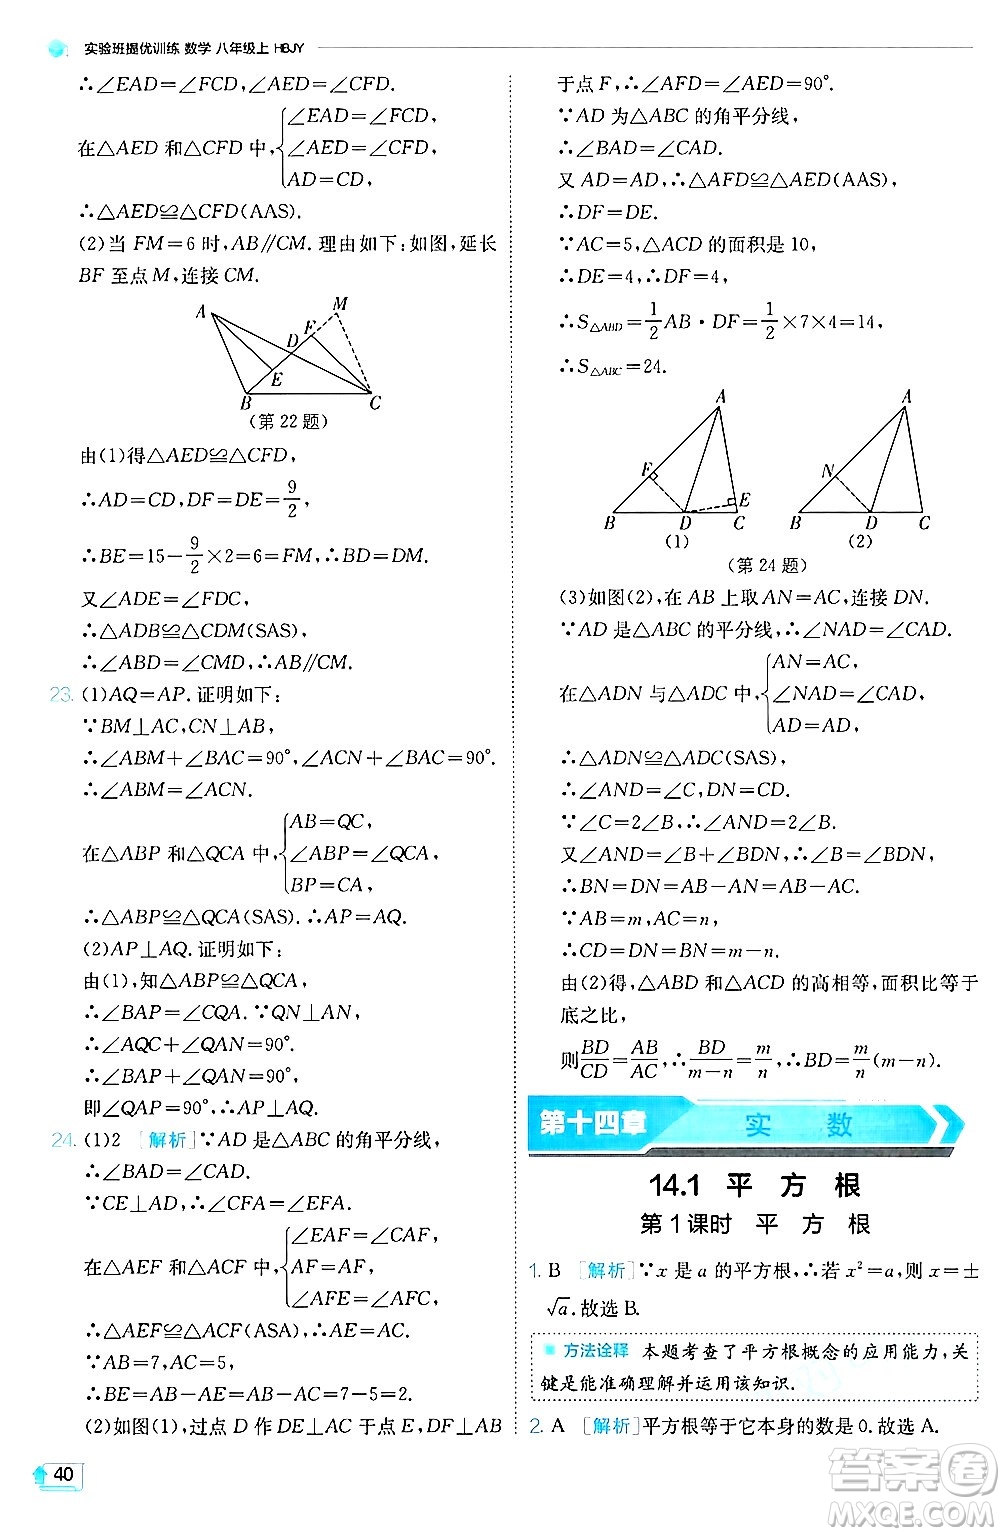 实验班提优训练 数学 八年级上 HBJY
∴∠EAD=∠FCD,∠AED=∠CFD.
在△AED 和△CFD 中,{∠EAD=∠FCD,
∠AED=∠CFD,
AD=CD,
∴△AED≌△CFD(AAS).
(2)当 FM=6 时,AB∥CM. 理由如下:如图,延长
BF 至点 M,连接 CM.
A
M
F
D
E
B
C
(第 22 题)
由(1)得△AED≌△CFD,
∴AD=CD,DF=DE=9/2,
∴BE=15-9/2×2=6=FM,∴BD=DM.
又∠ADE=∠FDC,
∴△ADB≌△CDM(SAS).
∴∠ABD=∠CMD,∴AB∥CM.
23. (1)AQ=AP. 证明如下:
∵BM⊥AC,CN⊥AB,
∴∠ABM+∠BAC=90°,∠ACN+∠BAC=90°.
∴∠ABM=∠ACN.
在△ABP 和△QCA 中,{AB=QC,
∠ABP=∠QCA,
BP=CA,
∴△ABP≌△QCA(SAS). ∴AP=AQ.
(2)AP⊥AQ. 证明如下:
由(1),知△ABP≌△QCA,
∴∠BAP=∠CQA. ∵QN⊥AN,
∴∠AQC+∠QAN=90°.
∴∠BAP+∠QAN=90°,
即∠QAP=90°,∴AP⊥AQ.
24. (1)2 [解析]∵AD 是△ABC 的角平分线,
∴∠BAD=∠CAD.
∵CE⊥AD,∴∠CFA=∠EFA.
在△AEF 和△ACF 中,{∠EAF=∠CAF,
AF=AF,
∠AFE=∠AFC,
∴△AEF≌△ACF(ASA),∴AE=AC.
∵AB=7,AC=5,
∴BE=AB-AE=AB-AC=7-5=2.
(2)如图(1),过点 D 作 DE⊥AC 于点 E,DF⊥AB
40
于点 F,∴∠AFD=∠AED=90°.
∵AD 为△ABC 的角平分线,
∴∠BAD=∠CAD.
又 AD=AD,∴△AFD≌△AED(AAS).
∴DF=DE.
∵AC=5,△ACD 的面积是 10,
∴DE=4,∴DF=4,
∴S△ABD=1/2AB·DF=1/2×7×4=14,
∴S△ABC=24.
A
F
E
B
D
C
(1)
A
N
B
D
C
(2)
(第 24 题)
(3)如图(2),在 AB 上取 AN=AC,连接 DN.
∵AD 是△ABC 的平分线,∴∠NAD=∠CAD.
在△ADN 与△ADC 中,{AN=AC,
∠NAD=∠CAD,
AD=AD,
∴△ADN≌△ADC(SAS).
∴∠AND=∠C,DN=CD.
∵∠C=2∠B,∴∠AND=2∠B.
又∠AND=∠B+∠BDN,∴∠B=∠BDN.
∴BN=DN=AB-AN=AB-AC.
∵AB=m,AC=n,
∴CD=DN=BN=m-n.
由(2)得,△ABD 和△ACD 的高相等,面积比等于
底之比,
则BD/CD=AB/AC,∴BD/(m-n)=m/n,∴BD=m/n(m-n).
第十四章 实 数
14.1 平 方 根
第 1 课时 平 方 根
1. B [解析]∵x 是 a 的平方根,∴若 x²=a,则 x=±
√a. 故选 B.
方法诠释 本题考查了平方根概念的应用能力,关
键是能准确理解并运用该知识.
2. A [解析]平方根等于它本身的数是 0. 故选 A.
答案圈
MXQE.COM